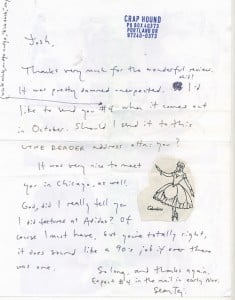 CRAP HOUND
PO BOX 40373
PORTLAND OR
97240-0373
Josh,
Thanks very much for the wonderful review.
It was pretty damned unexpected. I'd
like to send you #6 when it comes out
in October. Should I send it to this
UTNE READER address attn: you?
It was very nice to meet
you in Chicago, as well.
God, did I really tell you
I did textures at Adidas? Of
course I must have, but you're totally right,
it does sound like a 90's job if ever there
was one.
So long, and thanks again.
Expect # in the mail in early Nov.
Sean Tej